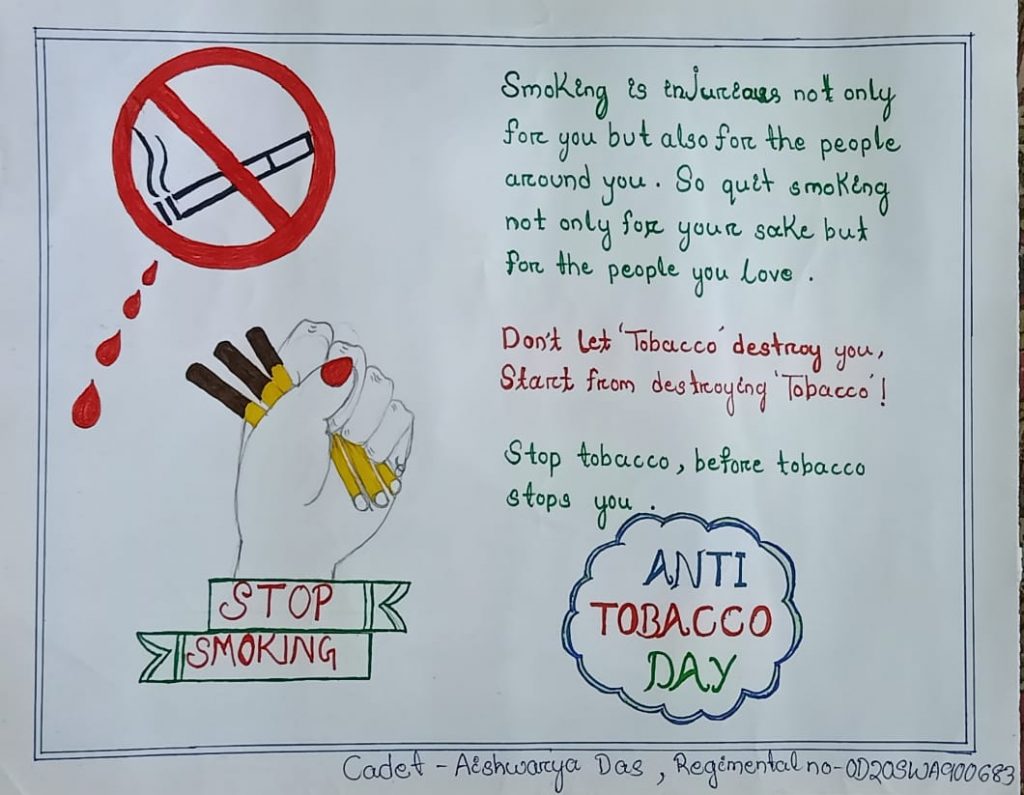 Smoking is injurious not only
for you but also for the people
around you. So quit smoking
not only for your sake but
for the people you love.
Don't let 'Tobacco' destroy you,
Start from destroying 'Tobacco'!
Stop tobacco, before tobacco
stops you.
STOP
SMOKING
ANTI
TOBACCO
DAY
Cadet - Aishwarya Das, Regimental no-OD20SWA900683